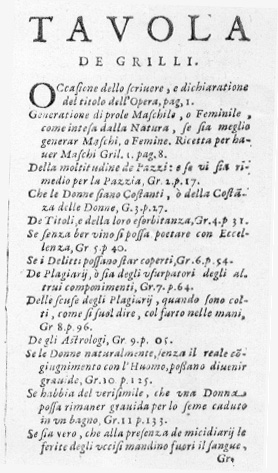 TAVOLA
DE GRILLI.
OCcasione dello scriuere, e dichiaratione
del titolo dell'Opera, pag, 1.
Generatione di prole Maschile, o Feminile,
come intesa dalla Natura, se sia meglio
generar Maschi, o Femine. Ricetta per ha
uer Maschi Gril. 1. pag. 8.
Della moltitudine de Pazzi: e se vi sia ri-
medio per la Pazzia, Gr. 2. p. 17.
Che le Donne siano Costanti, ò della Costã
za delle Donne, G. 3. p. 27.
De Titoli, e della loro esorbitanza, Gr. 4. p 31.
Se senza ber vino si possa poetare con Eccel-
lenza, Gr 5. p 40.
Se i Delitti possano star coperti, Gr. 6. p. 54.
De Plagiarij, ò sia degli vsurpatori degli al
trui componimenti, Gr. 7. p. 64.
Delle scuse degli Plagiarij, quando sono col-
ti, come si suol dire, col furto nelle mani,
Gr 8. p. 96.
De gli Astrologi, Gr. 9. p. 05.
Se le Donne naturalmente, senza il reale cõ-
giugnimento con l'Huomo, possano diuenir
grauide, Gr. 10. p. 125.
Se habbia del verisimile, che vna Donna
possa rimaner grauida per lo seme caduto
in vn bagno, Gr. 11 p. 133.
Se sia vero, che alla presenza de micidiarij le
ferite degli vccisi mandino fuori il sangue,
Gr.